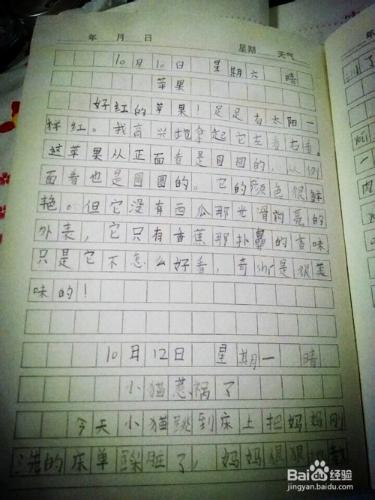 年 月 日 星期 天气
10月10日 星期六 晴
苹果
好红的苹果!足足有太阳一
样红。我高兴地拿起它左看右看。
这苹果从正面看是圆圆的,从侧
面看也是圆圆的。它的颜色很鲜
艳。但它没有西瓜那 滑 亮的
外表,它只有香蕉那扑鼻的香味
只是它不怎么好看,吃 shí是很美
味的!
10月12日 星期一 晴
小猫惹祸了
今天小猫跳到床上把妈妈刚
洗的床单踩脏了,妈妈狠狠
Bai百度经验
jingyan.baidu.com